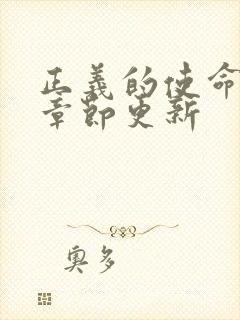 正義的使命
章節更新
奧多